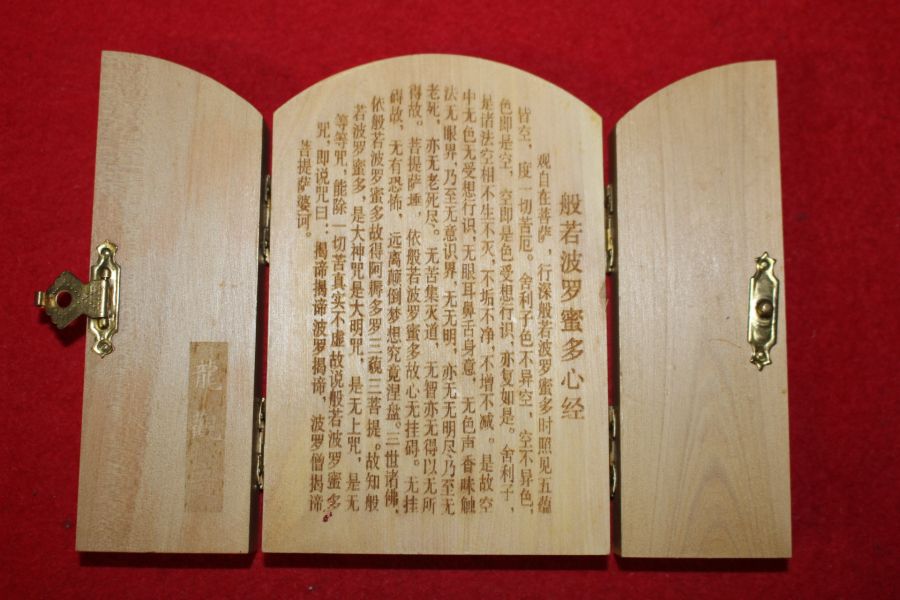 般若波罗蜜多心经
观自在菩萨，行深般若波罗蜜多时照见五蕴
皆空，度一切苦厄。舍利子色不异空，空不异色，
色即是空，空即是色受想行识、亦复如是。舍利子，
是诸法空相不生不灭、不垢不净、不增不减。是故空
中无色无受想行识、无眼耳鼻舌身意，无色声香味触
法无眼界，乃至无意识界，无无明，亦无无明尽乃至无
老死，亦无老死尽。无苦集灭道，无智亦无得以无所
得故。菩提萨埵，依般若波罗蜜多故心无挂碍。无挂
碍故，无有恐怖，远离颠倒梦想究竟涅盘。三世诸佛，
依般若波罗蜜多故得阿耨多罗三藐三菩提。故知般
若波罗蜜多，是大神咒是大明咒，是无上咒，是无
等等咒，能除一切苦真实不虚故说般若波罗蜜多
咒，即说咒曰：揭谛揭谛波罗揭谛，波罗僧揭谛
菩提萨婆诃。
龍